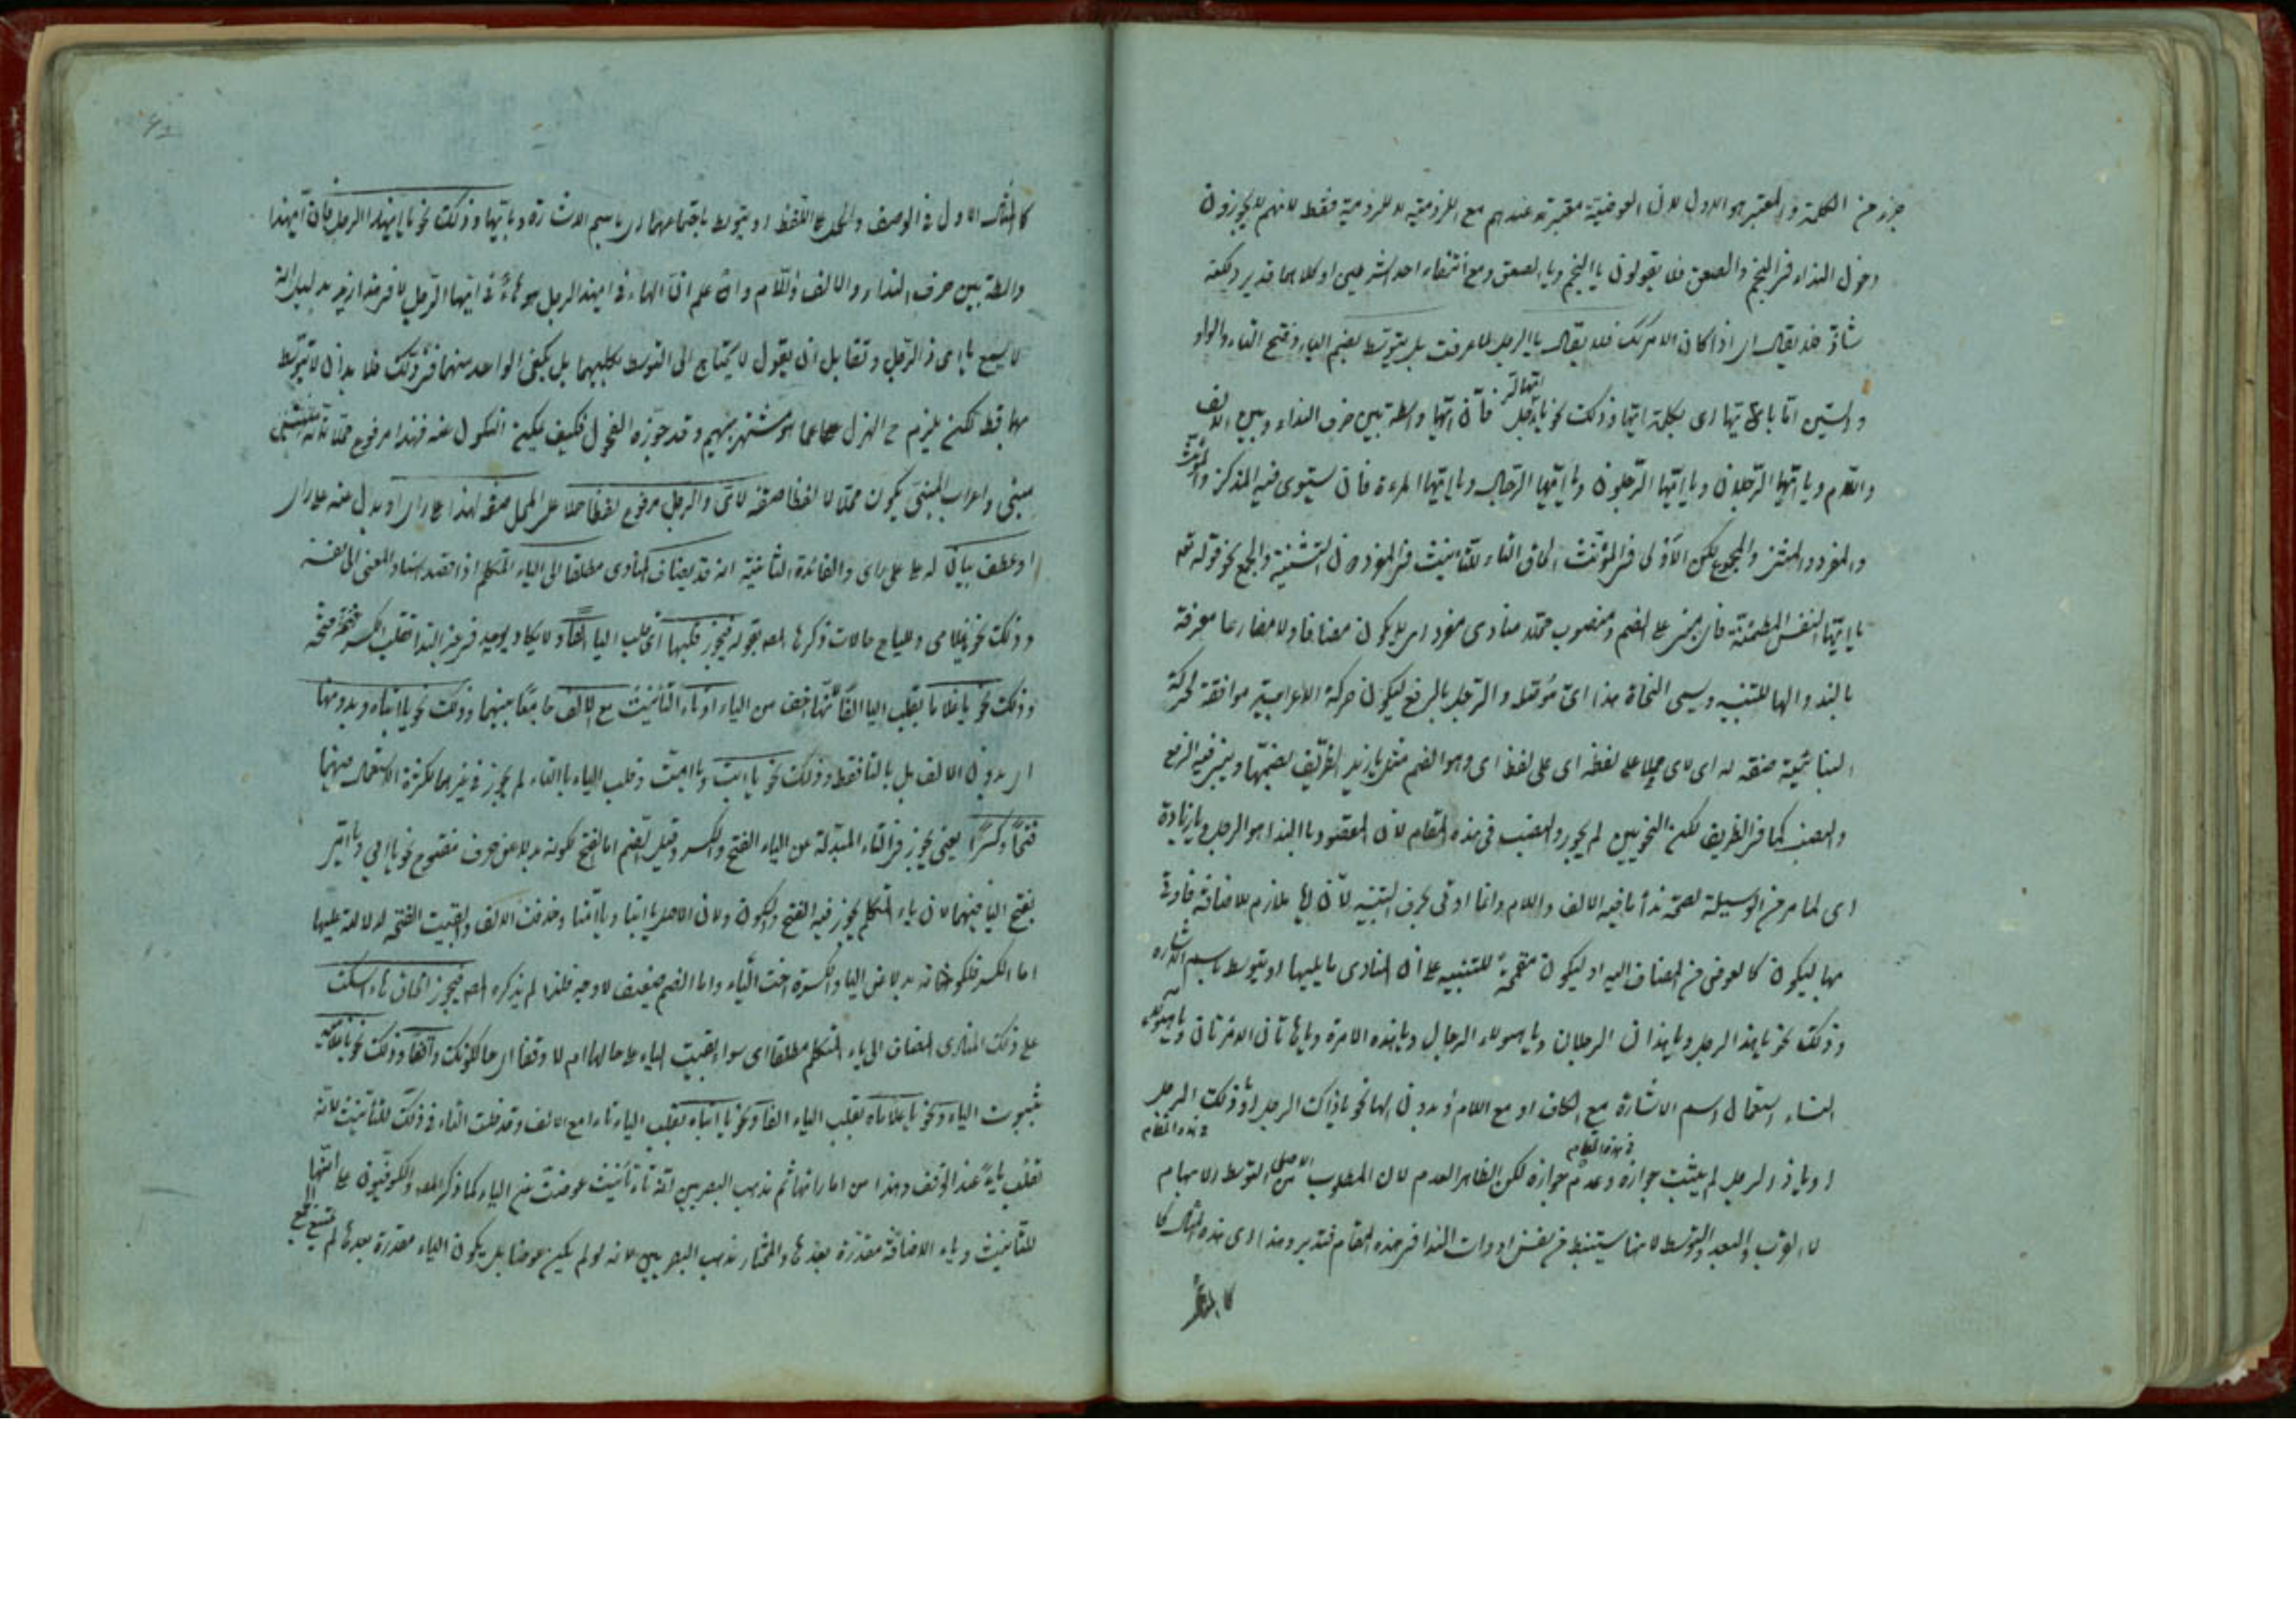 جزء من الكلمة والمعتبر هو الاول لان العوضية معتبرة عندهم مع اللزومية لا اللزومية فقط لانهم لا يجوزون
دخول النداء في النجم والصعق فلا يقولون يا النجم ويا الصعق ومع انتفاء احد الشرطين او كلاهما
شاذ فلا يقال اي اذا كان الامر كذلك فلا يقال يا الرجل لما عرفت بل يتوسط بضم الياء وفتح التاء والواو
والسين اما بايتها اى بكلمة ايها وذلك نحو يا ايها الرجل فان ايها واسطة بين حرف النداء وبين الالف
واللام ويا ايها الرجلان ويا ايها الرجلون ويا ايها الرجال ويا ايتها المرءة فان يستوى فيه المذكر والمؤنث
والمفرد والمثنى والمجموع لكن الاولى في المؤنث الحاق التاء للتأنيث في المفرد دون التثنية والجمع نحو قوله تعم
يا ايتها النفس المطمئنة فاي مبني على الضم ومنصوب محلا منادى مفرد اى لا يكون مضافا ولا مضارعا معرفة
بالنداء والها للتنبيه ويسمى النحاة هذا اى والرجل بالرفع ليكون حركة الاعرابية موافقة لحركة
البنائية صفة له اى لاى حملا على لفظه اى على لفظ اى وهو الضم مثل يا زيد الظريف بضمها ويجوز فيه الرفع
والنصب كما في الظريف لكن النحويين لم يجوزوا النصب في هذه المقام لان المقصود بالنداء هو الرجل
اى لما مر من الوسيلة لصحة نداء ما فيه الالف واللام وانما اوتى بحرف التنبيه لان اي ملازم للاضافة فاوتى
بها ليكون كالعوض من المضاف اليه او ليكون للتنبيه على ان المنادى ما يليها او يتوسط باسم الاشارة
وذلك نحو يا هذا الرجل ويا هذان الرجلان ويا هؤلاء الرجال ويا هذه الامرة ويا هاتان الامرتان ويا هؤلاء
النساء استعمال اسم الاشارة مع الكاف او مع اللام او بدون الها نحو يا ذاك الرجل او ذلك الرجل
او يا ذا الرجل لم يثبت جوازه وعدم جوازه في هذه المقام لكن الظاهر العدم لان المطلوب الاصلى من التوسط الابهام
لا القرب والبعد والتوسط لانها يستنبط من نفس ادوات النداء في هذه المقام فتدبر وهذا اى هذه المثال كا
كالمثال
كالمثال الاول في الوصف والحمل على اللفظ او يتوسط باجتماعهما اى باسم الاشارة وبايها وذلك نحو يا ايهذا الرجل فان ايهذا
واسطة بين حرف النداء والالف واللام وان علم ان الهاء في ايهذا الرجل هو هاء في ايها الرجل لا في هذا الرجل بدليل انه
لا يسمع يا اى ذا الرجل ولقايل ان يقول لا يحتاج الى التوسط بكليهما بل يكفى الواحد منهما في ذلك فلا بد ان لا يتوسط
بهما قط لكن يلزم ح العزل عما هو مشتهر بينهم وقد جوزه الفحول فكيف يمكن النكول عنه فهذا مرفوع محلا
مبنى واعراب المبنى يكون محلا لا لفظا صفة لاى والرجل مرفوع لفظا حملا على المحل صفة لهذا على راى او بدل منه على راى
او عطف بيان له على راى والفائدة الثانية انه قد يضاف المنادى مطلقا الى الياء المتكلم اذا قصد اسناد المعنى الى نفسه
وذلك نحو يا غلامى وللياء ح حالات ذكرها المص بقوله فيجوز قلبها اى قلب الياء الفا ولا يكاد يوجد في غير النداء فقلب الكسرة فتحة
وذلك نحو يا غلاما بقلب اليا الفا لانها اخف من الياء او تاء التأنيث مع الالف جامعا بينهما وذلك نحو يا ابتاه وبدونها
اى بدون الالف بل بالتا فقط وذلك نحو يا ابت ويا امت وقلب الياء بالتاء لم يجوز في غيرهما لكثرة الاستعمال فيهما
فتحا وكسرا يعنى يجوز في التاء المبدلة عن الياء الفتح والكسر وقيل الضم اما الفتح لكونه بدلا عن حرف مفتوح نحو يا ابي ويا امي
بفتح اليا فيهما لان ياء المتكلم يجوز فيه الفتح والسكون ولان الاصل يا ابتا ويا امتا وحذفت الالف وابقيت الفتحة لدلالة عليها
اما الكسر فلكونها بدلا من اليا والكسرة اخت الياء واما الضم ضعيف لا وجه فلذا لم يذكره المص فيجوز الحاق هاء السكت
على ذلك المنادى المضاف الى ياء المتكلم مطلقا اى سواء بقيت الياء على حالها ام لا وقفا اى حالكونك واقفا وذلك نحو يا غلاميه
بثبوت الياء ونحو يا غلاماه بقلب الياء الفا ونحو يا ابتاه بقلب الياء تاء مع الالف وقد قلت التاء في ذلك للتأنيث لانه
تقلب هاء عند الوقف وهذا من اماراتها ثم مذهب البصريين انه تاء تأنيث عوضت عن الياء كما ذكر المص والكوفيون على انها
للتأنيث وياء الاضافة مقدرة بعدها والمختار مذهب البصريين لانه لو لم يكن عوضا بل يكون الياء مقدرة بعدها لم يمتنع الجمع